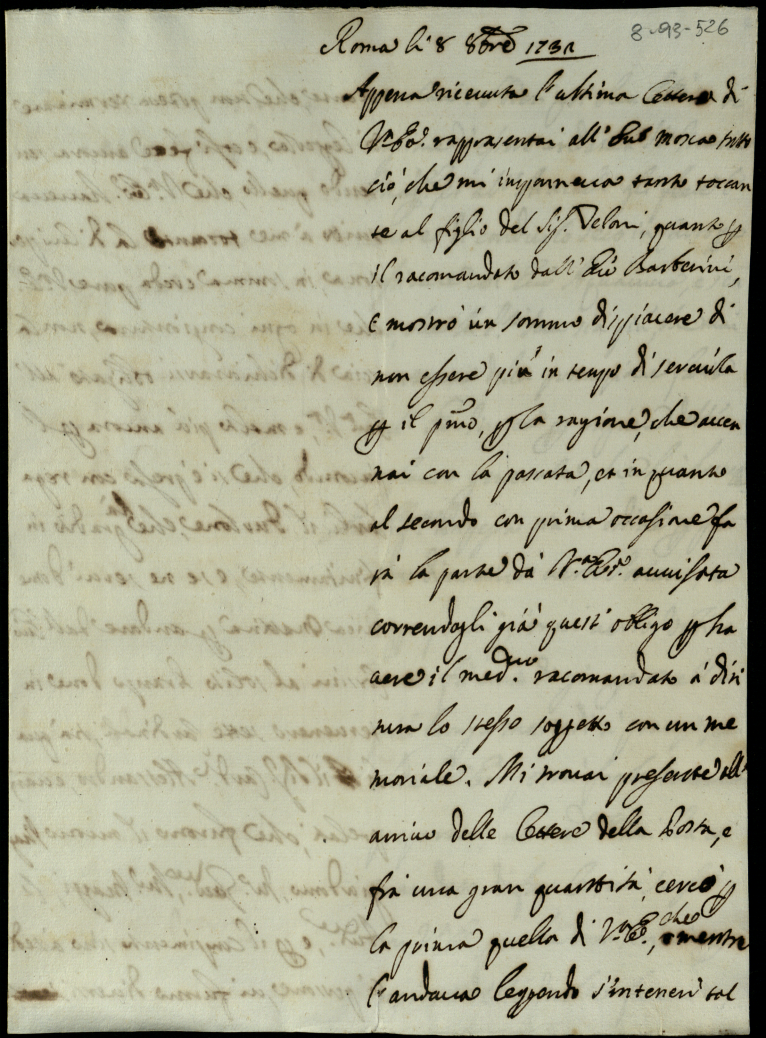 8-93-526
Roma li 8 8bre 1731
Appena ricevuta l'ultima lettera di
V.ra Ecc.a rappresentai all' Mosca tutto
ciò, che mi imponeva tanto toccan
te al figlio del Sig.r Veloni, quanto p
il racomandato dall' Barberini,
e mostrò un sommo dispiacere di
non essere più in tempo di servirla
p il pmo, p la ragione, che accen
nai con la passata, et in quanto
al secondo con prima occasione fa
rà la parte da V.ra Ecc.a avvisata
correndogli già questi obligo p ha
vere il med.mo racomandato à diri
tura lo stesso soggetto con un me
moriale. Mi trovai presente all'
arrivo delle lettere della Posta, e
frà una gran quantità, cercò p
la prima quella di V.ra Ecc.a, che mentre
l'andava leggendo s'intenerì tal